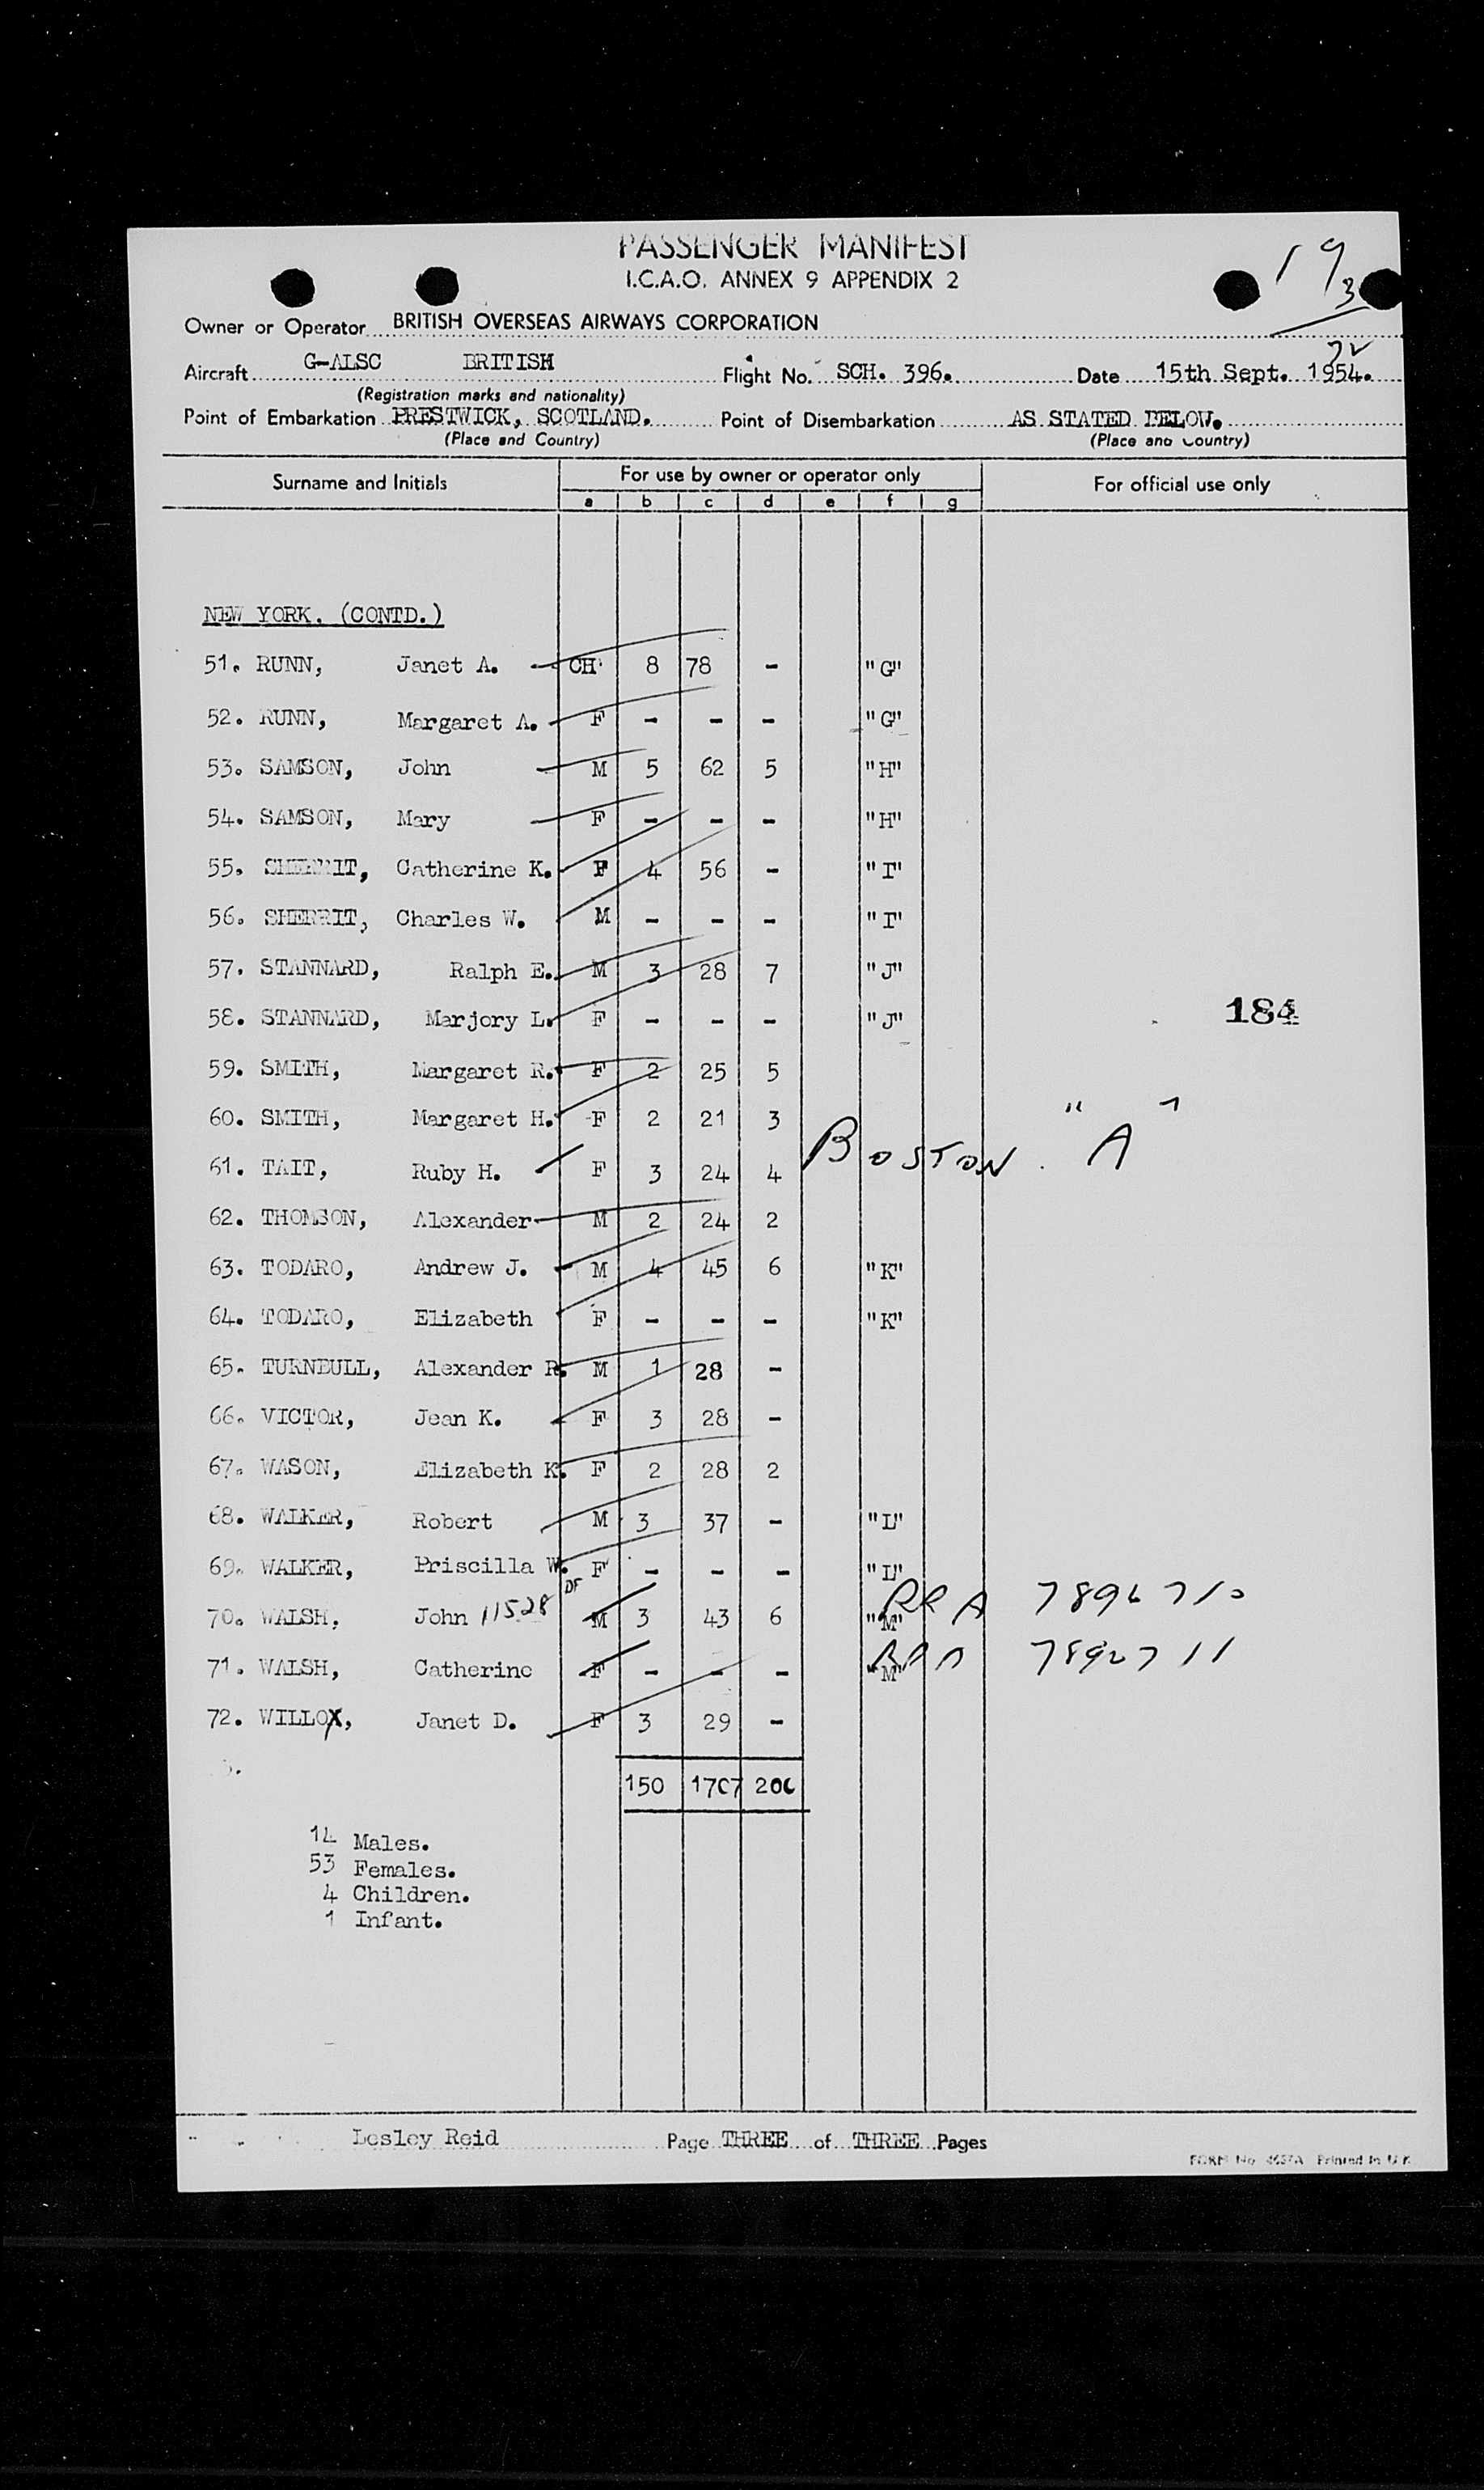 PASSENGER MANIFEST
I.C.A.O. ANNEX 9 APPENDIX 2
19
3
Owner or Operator BRITISH OVERSEAS AIRWAYS CORPORATION
72
Aircraft G-ALSC BRITISH Flight No. SCH. 396. Date 15th Sept. 1954.
(Registration marks and nationality)
Point of Embarkation PRESTWICK, SCOTLAND. Point of Disembarkation AS STATED BELOW.
(Place and Country) (Place and Country)
Surname and Initials For use by owner or operator only For official use only
a b c d e f g
NEW YORK. (CONTD.)
51. RUNN, Janet A. CH 8 78 - "G"
52. RUNN, Margaret A. F - - - "G"
53. SAMSON, John M 5 62 5 "H"
54. SAMSON, Mary F - - - "H"
55. SHERRIT, Catherine K. F 4 56 - "I"
56. SHERRIT, Charles W. M - - - "I"
57. STANNARD, Ralph E. M 3 28 7 "J"
58. STANNARD, Marjory L. F - - - "J" 184
59. SMITH, Margaret R. F 2 25 5
60. SMITH, Margaret H. F 2 21 3
61. TAIT, Ruby H. F 3 24 4 BOSTON. "A"
62. THOMSON, Alexander M 2 24 2
63. TODARO, Andrew J. M 4 45 6 "K"
64. TODARO, Elizabeth F - - - "K"
65. TURNBULL, Alexander R. M 1 28 -
66. VICTOR, Jean K. F 3 28 -
67. WASON, Elizabeth K. F 2 28 2
68. WALKER, Robert M 3 37 - "L"
69. WALKER, Priscilla W. F - - - "L"
70. WALSH, John 11528 DF M 3 43 6 "M" RRA
71. WALSH, Catherine F - - - "M"
72. WILLOX, Janet D. F 3 29 -
150 1707 206
14 Males.
53 Females.
4 Children.
1 Infant.
Lesley Reid Page THREE of THREE Pages
FORM No. 4657A Printed in U.K.